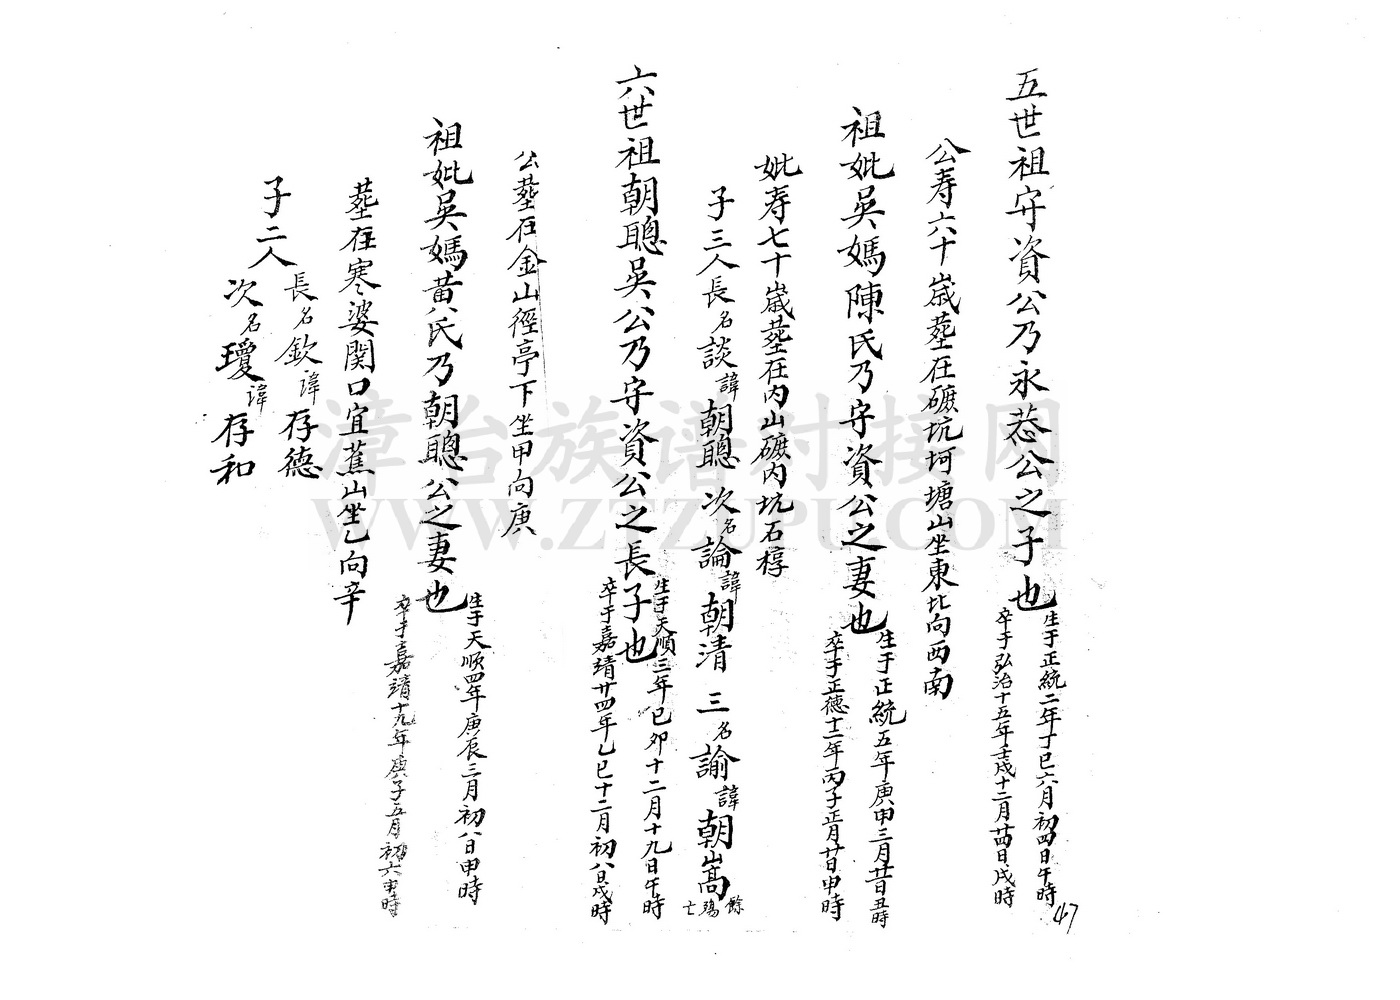 五世祖守資公乃永菾公之子也
生于正統二年丁巳六月初四日午時
卒于弘治十五年壬戍十二月廿四日戍時
公寿六十歲塟在礦坑坷塘山坐東北向西南
祖妣吳媽陳氏乃守資公之妻也
生于正統五年庚申三月廿日丑時
卒于正德十二年丙子正月廿日申時
妣寿七十歲塟在内山礦内坑石槨
子三人長名談諱朝聰 次名論諱朝清 三名諭諱朝嵩
餘殤亡
六世祖朝聰吳公乃守資公之長子也
生于天順三年已卯十二月十九日午時
卒于嘉靖廿四年乙巳十二月初八日戍時
公塟在金山徑亭下坐甲向庚
祖妣吳媽黄氏乃朝聰公之妻也
生于天順四年庚辰三月初八日申時
卒于嘉靖十九年庚子五月初六申時
塟在寒婆関口宜蕉山坐乙向辛
子二人
長名欽諱存德
次名瓊諱存和
47
漳台族谱对接网
WWW.ZTZUPU.COM